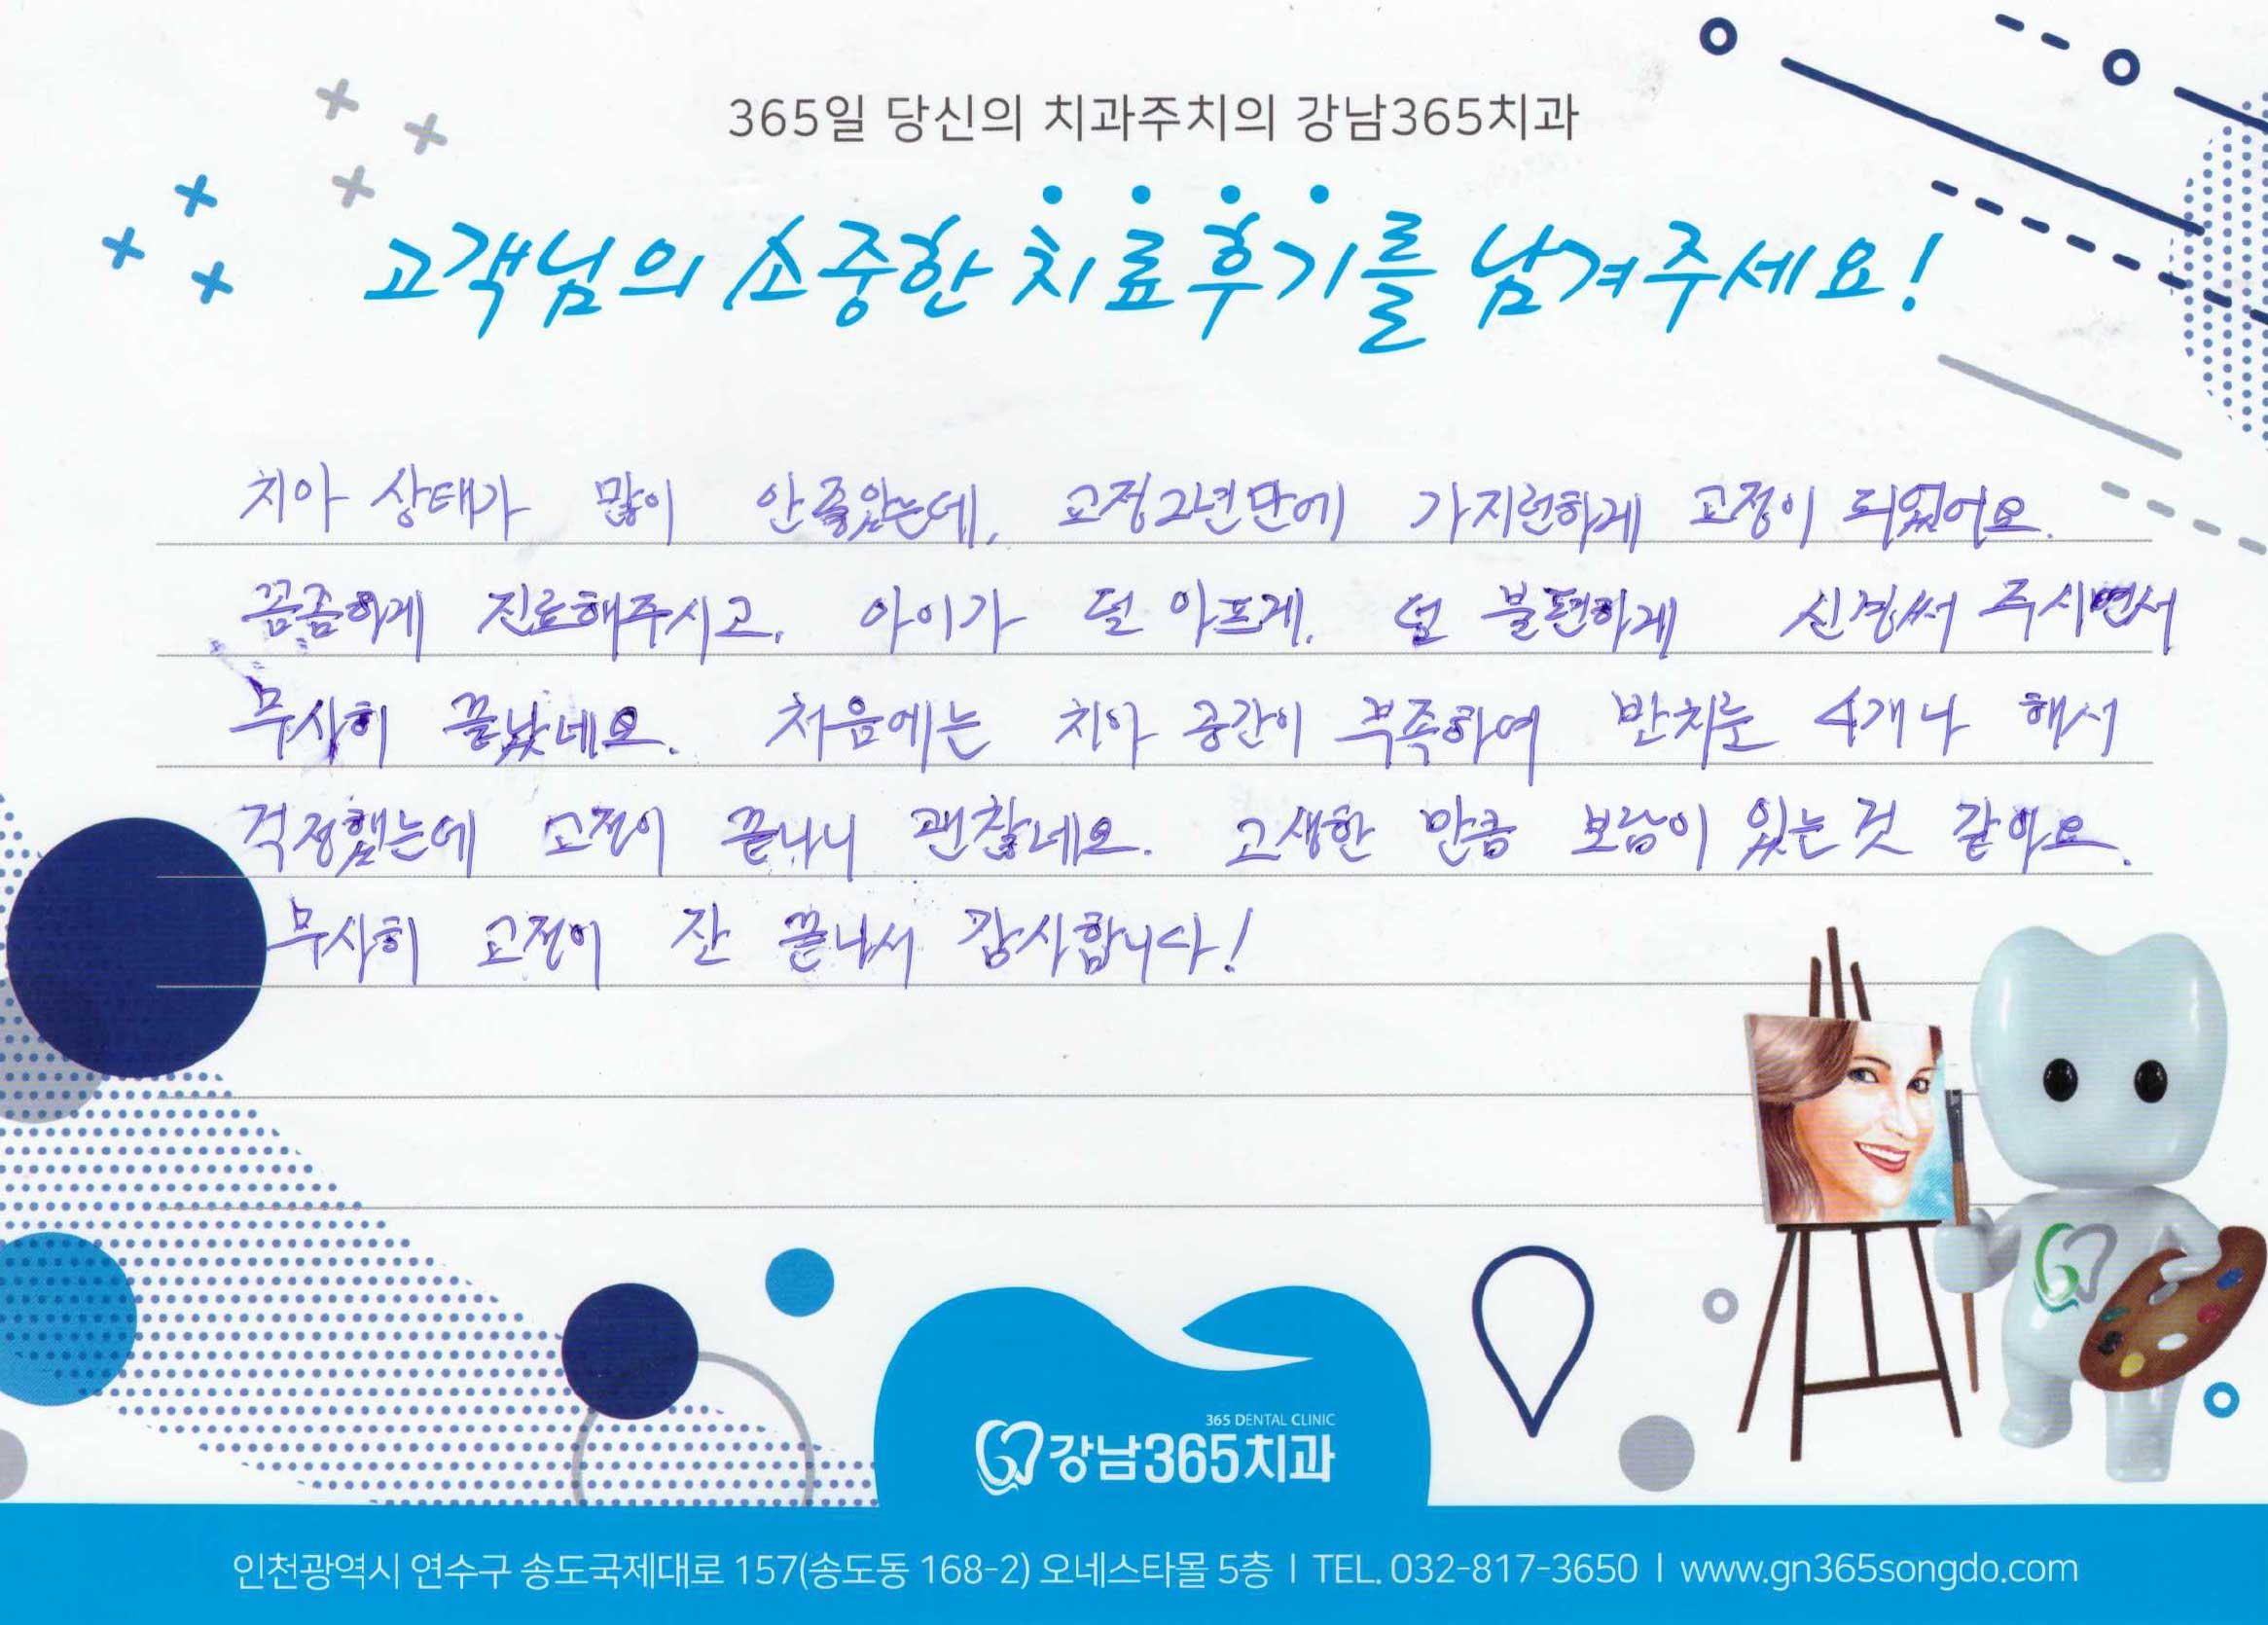 365일 당신의 치과주치의 강남365치과
고객님의 소중한 치료후기를 남겨주세요!
치아 상태가 많이 안좋았는데, 교정2년만에 가지런하게 교정이 되었어요.
꼼꼼하게 진료해주시고, 아이가 덜 아프게, 덜 불편하게 신경써 주시면서
무사히 끝났네요. 처음에는 치아 공간이 부족하여 발치를 4개나 해서
걱정했는데 교정이 끝나니 괜찮네요. 고생한 만큼 보람이 있는 것 같아요.
무사히 교정이 잘 끝나서 감사합니다!
365 DENTAL CLINIC
강남365치과
인천광역시 연수구 송도국제대로 157(송도동 168-2) 오네스타몰 5층 | TEL. 032-817-3650 | www.gn365songdo.com